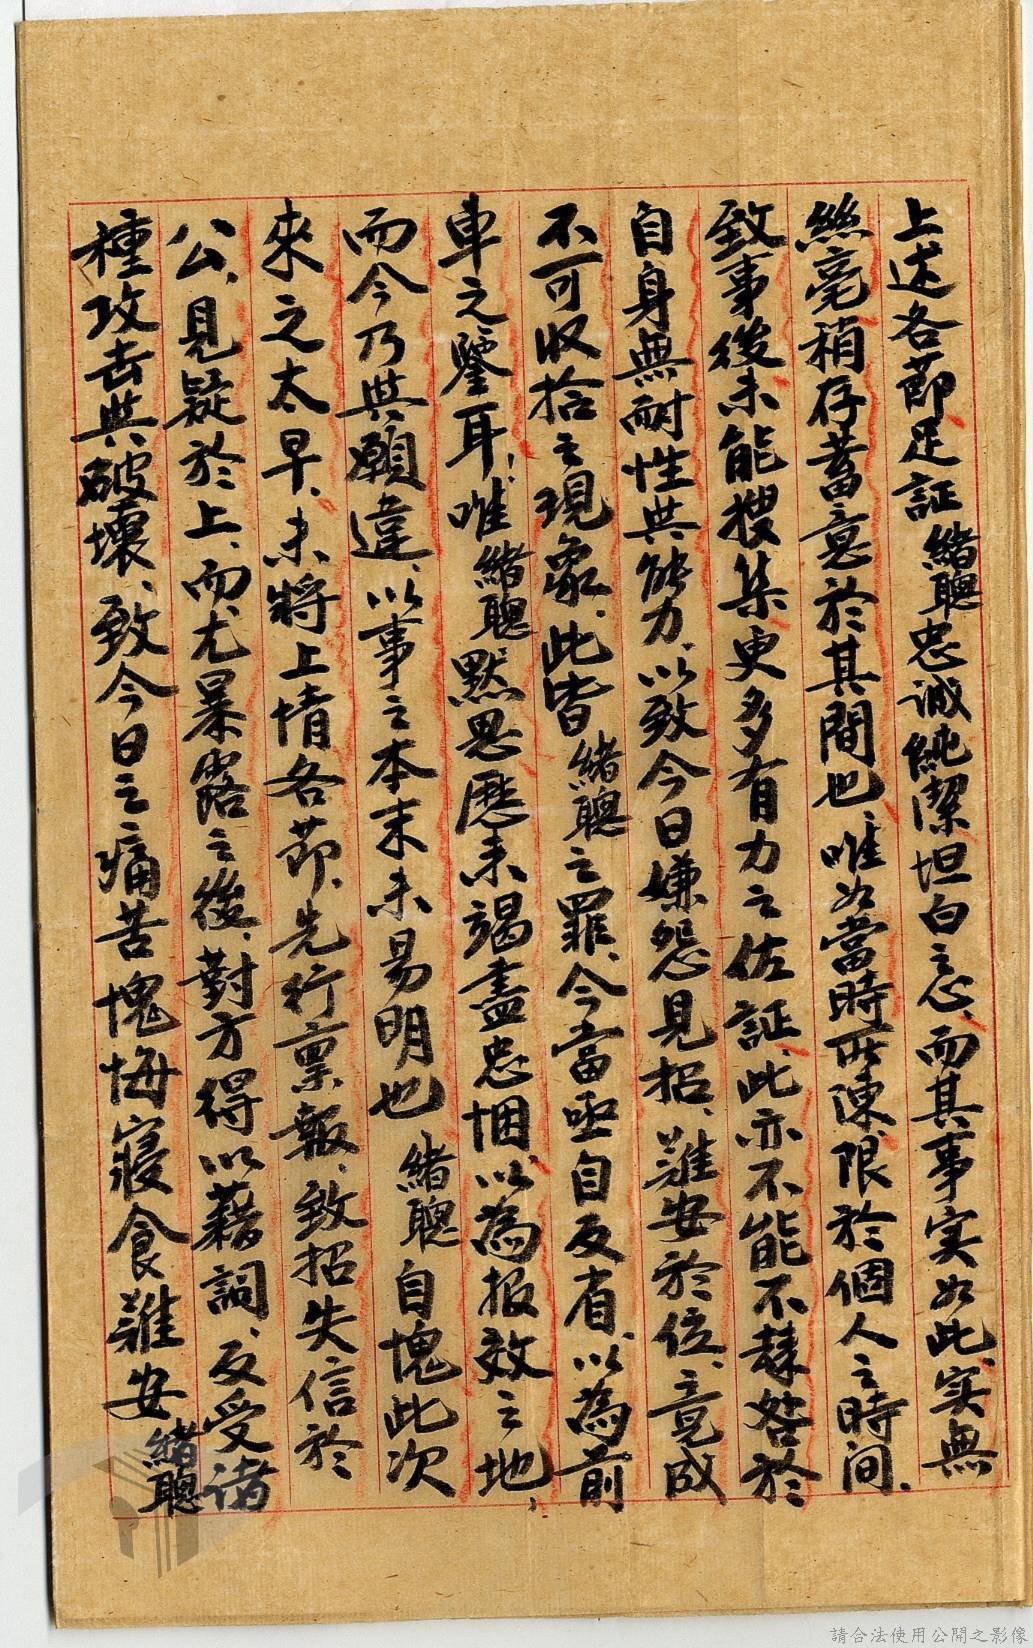 上述各節足証緒聰忠誠純潔坦白之心、而其事实如此、实無
絲毫稍存蓄意於其間也、唯如當時所陳限於個人之時间、
致事後未能搜集更多有力之佐証、此亦不能不歸咎於
自身無耐性與能力、以致今日嫌怨見招、難安於位、竟成
不可收拾之現象、此皆緒聰之罪、今當亟自反省、以為前
車之鑒耳！唯緒聰默思歷来竭盡忠悃以為报效之地、
而今乃與願違、以事之本末未易明也緒聰自愧此次
來之太早、未將上情各節、先行稟報、致招失信於
公、見疑於上、而尤暴露之後、對方得以藉詞、反受諸
種攻击與破壞、致今日之痛苦愧悔寢食難安緒聰
請合法使用公開之影像